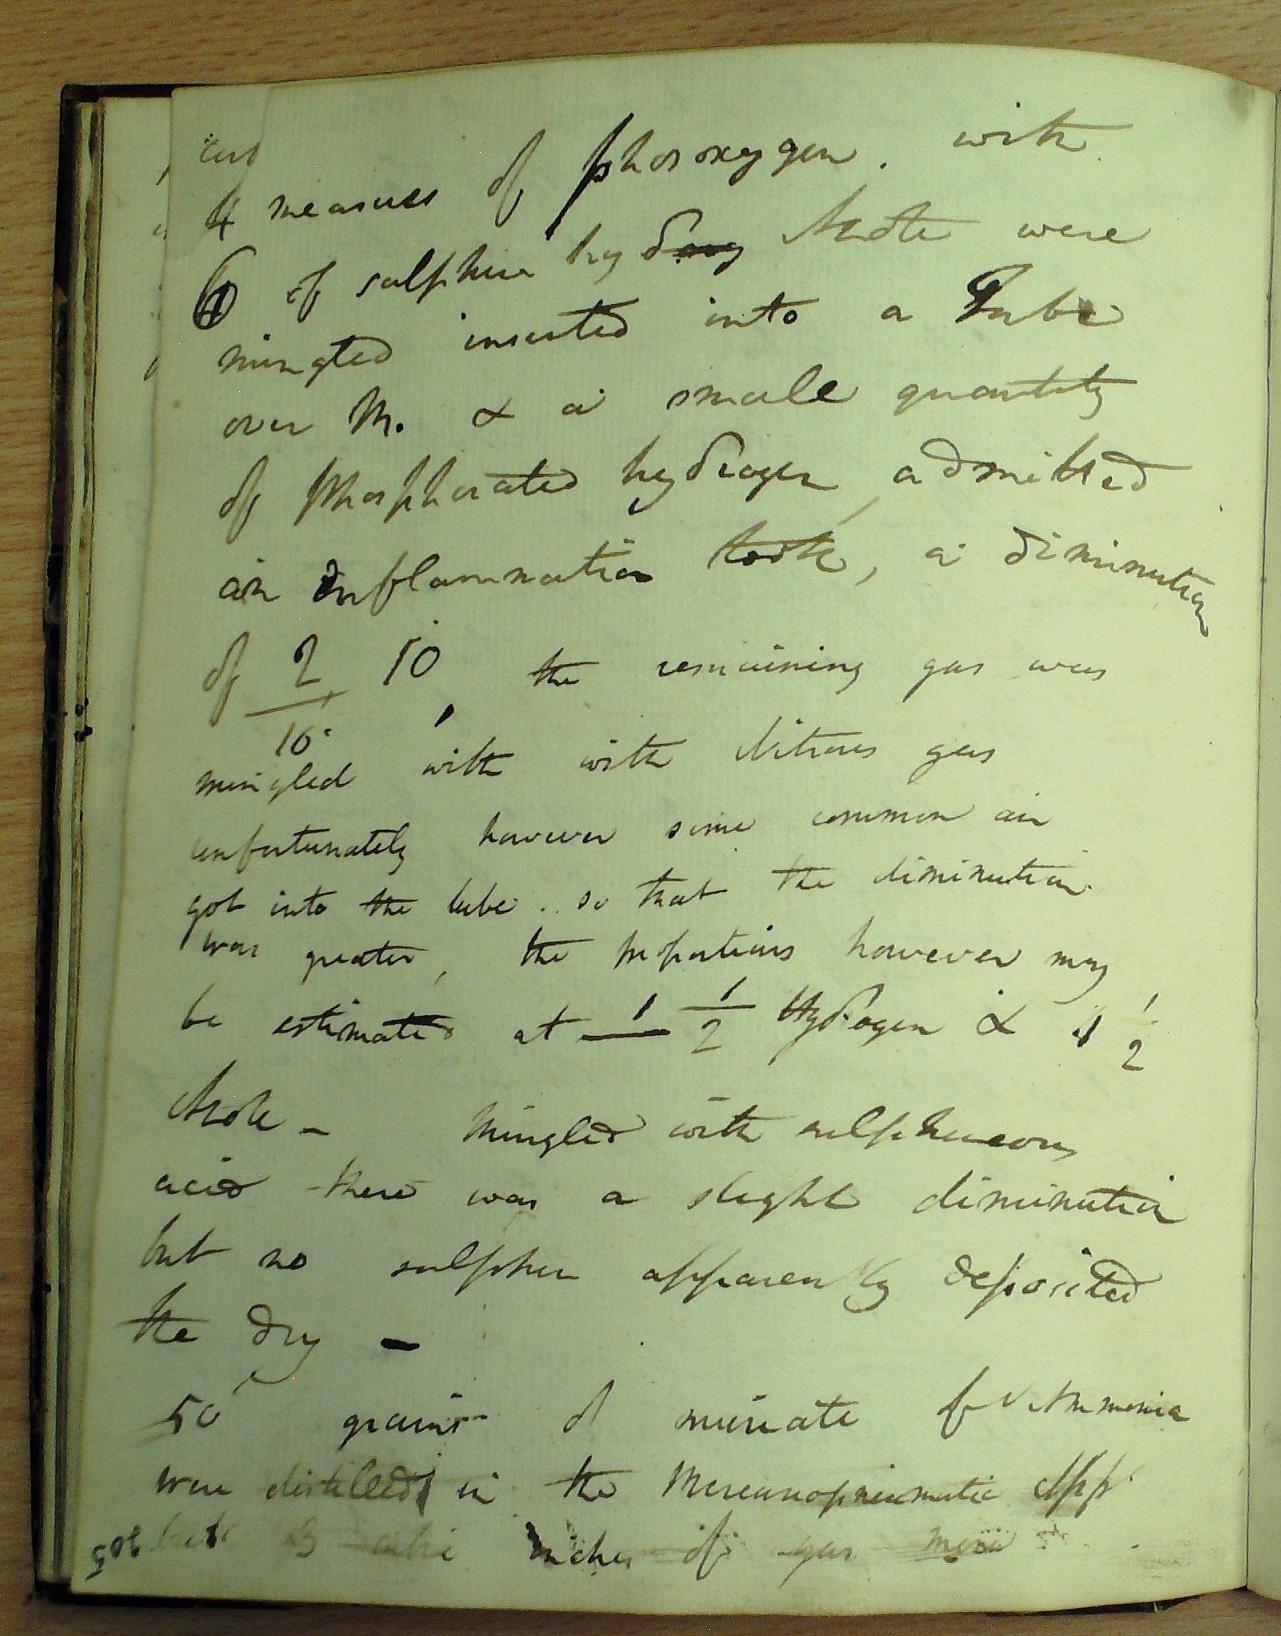 4 measures of phosoxygen. with
6 of sulphure hyd Azote were
mingled inserted into a Tube
over M. & a small quantity
of Phosphorated hydrogen, admitted
an Inflammation took, a diminution
of 2 10, the remaining gas was
16
mingled with with Nitrous gas
unfortunately however some common air
got into the tube. so that the diminution
was greater, the proportions however may
be estimated at 1 1/2 Hydrogen & 1 1/2
Azote - Mingled with sulphureous
acid there was a slight diminution
but no sulphur apparently deposited
the dry -
50 grains of muriate of Ammonia
were distilled in the Mercuriopneumatic App
3 inches of gas